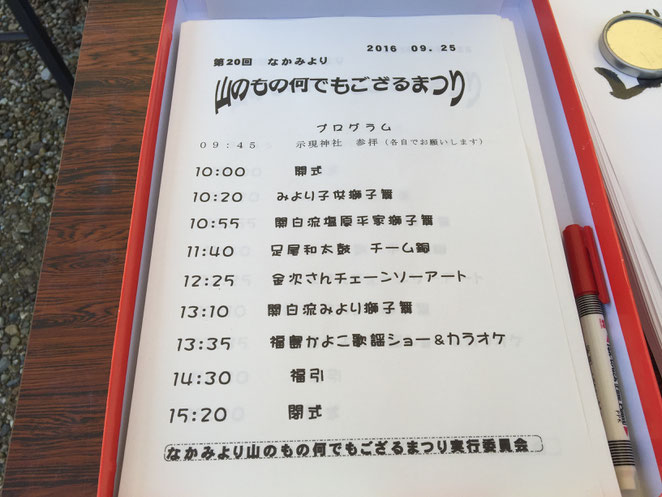 2016 09.25
第20回 なかみより
山のもの何でもござるまつり
プログラム
09:45 示現神社 参拝(各自でお願いします)
10:00 開式
10:20 みより子供獅子舞
10:55 関白流塩原平家獅子舞
11:40 足尾和太鼓 チーム銅
12:25 金次さんチェーンソーアート
13:10 関白流みより獅子舞
13:35 福島かよこ歌謡ショー&カラオケ
14:30 福引
15:20 閉式
なかみより山のもの何でもござるまつり実行委員会